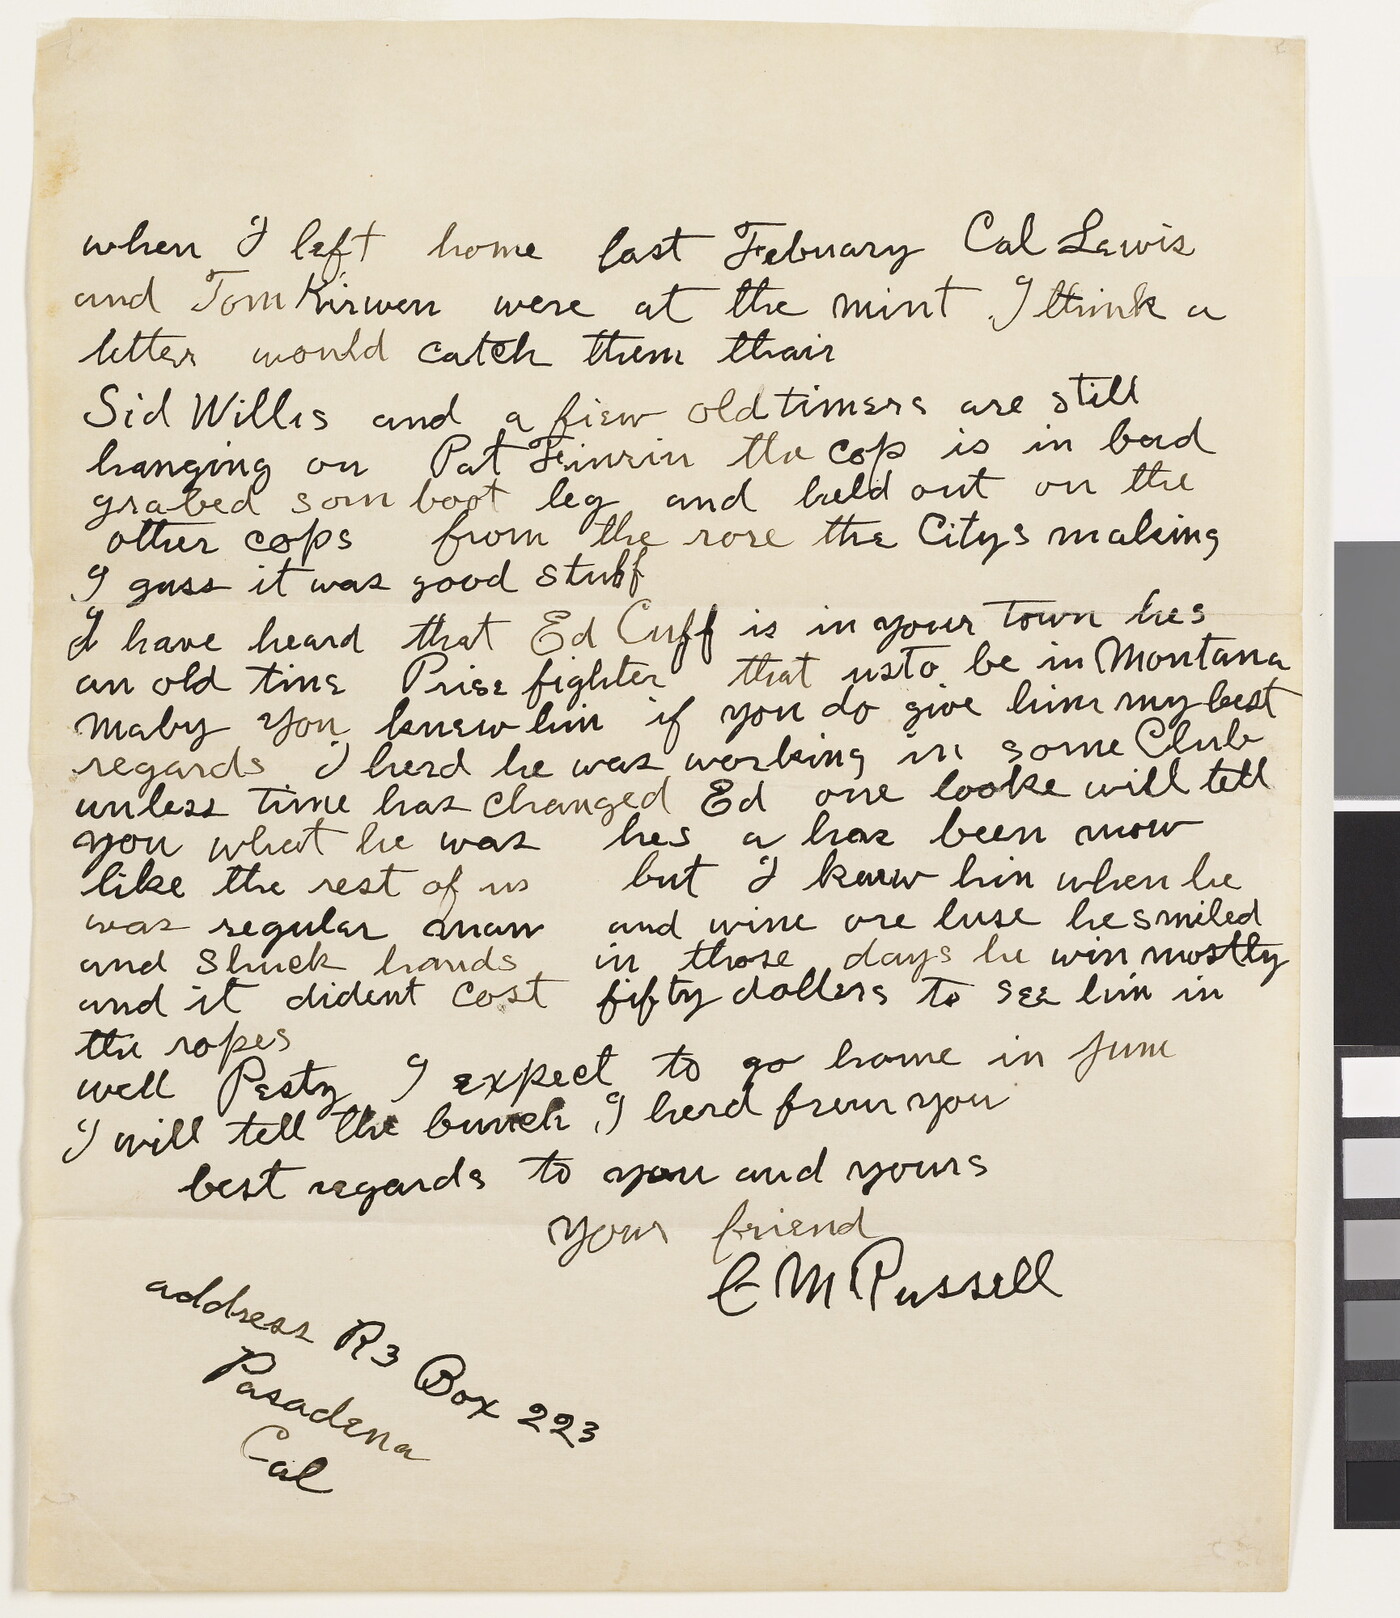 when I left home last Febuary Cal Lewis
and Tom Kirwen were at the mint I think a
letter would catch them thair
Sid Willis and a fiew old timers are still
hanging on Pat Finrin the cop is in bad
grabed som boot leg and held out on the
other cops from the rore the Citys making
I guss it was good stuff
I have heard that Ed Cuff is in your town hes
an old time Prise fighter that usto be in Montana
maby you knew him if you do give him my best
regards I herd he was working in some Club
unless time has changed Ed one looke will tell
you what he was hes a has been now
like the rest of us but I knew him when he
was regular man and wine ore luse he smiled
and shuck hands in those days he win mostly
and it dident cost fifty dollers to see him in
the ropes
well Pesty I expect to go home in June
I will tell the bunch I herd from you
best regards to you and yours
your friend
C M Russell
address R3 Box 223
Pasadena
Cal